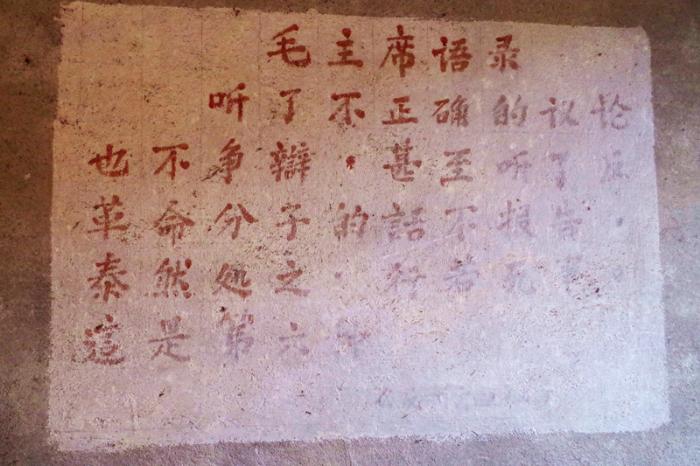 毛主席语录
听了不正确的议论
也不争辯·甚至听了反
革命分子的話不报告·
泰然处之·行若事。
這是第六